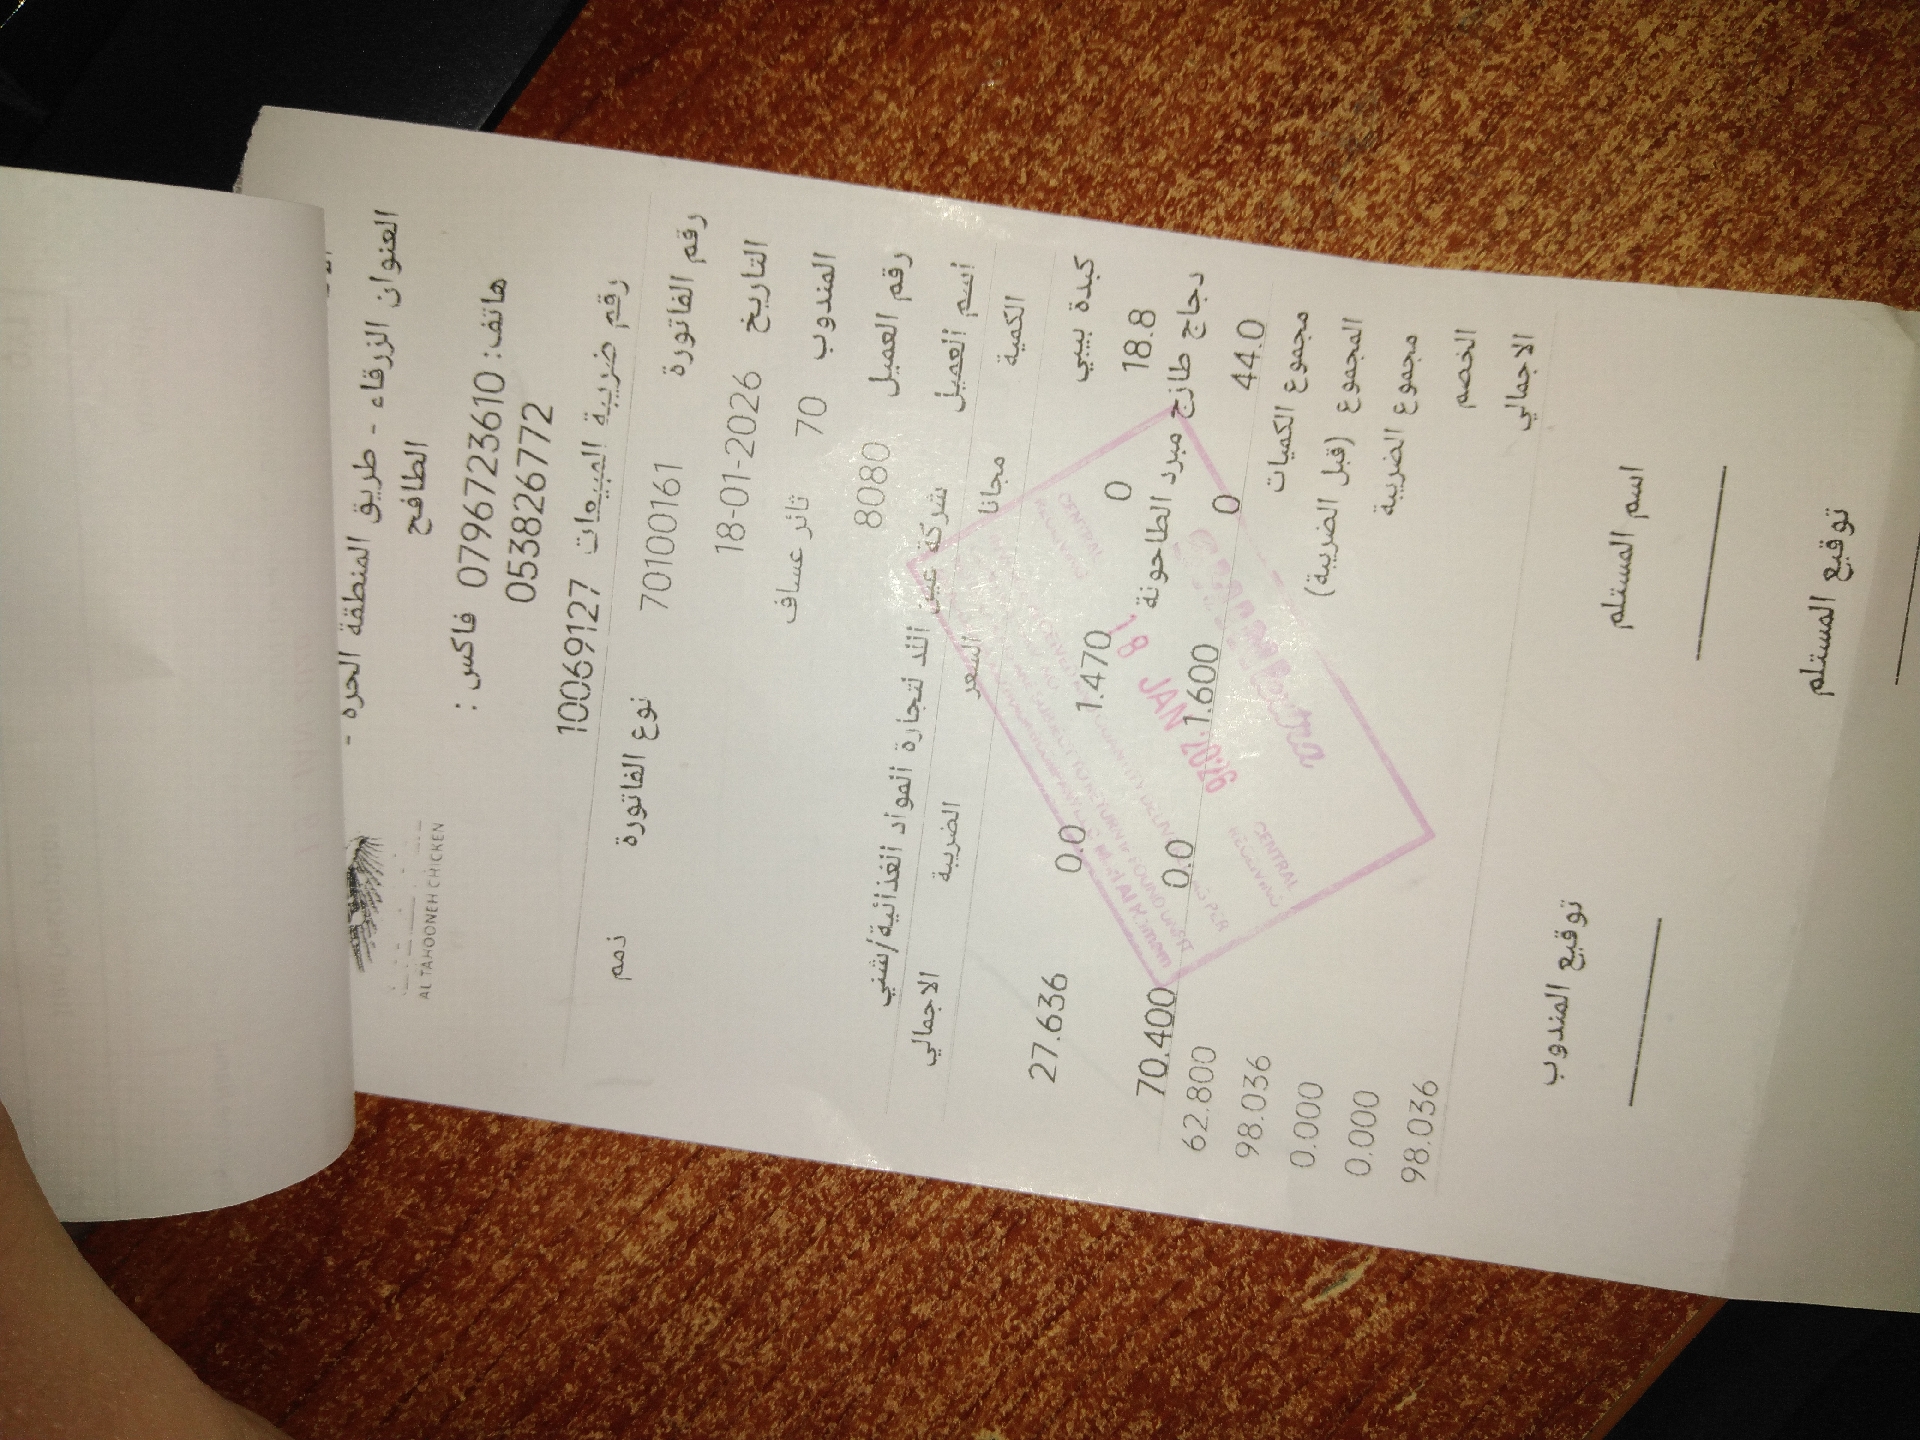 AL TAHOONEH CHICKEN
العنوان الزرقاء - طريق المنطقة الحرة -
الطافح
هاتف: 0796723610 فاكس :
053826772
رقم ضريبة المبيعات 10069127
رقم الفاتورة 70100161 نوع الفاتورة ذمم
التاريخ 18-01-2026
المندوب 70 ثائر عساف
رقم العميل 8080
اسم العميل شركة عين الند لتجارة المواد الغذائية/شني
الكمية مجانا السعر الضريبة الاجمالي
كبدة بيبي
18.8 0 1.470 0.0 27.636
دجاج طازج مبرد الطاحونة
44.0 0 1.600 0.0 70.400
مجموع الكميات 62.800
المجموع (قبل الضريبة) 98.036
مجموع الضريبة 0.000
الخصم 0.000
الاجمالي 98.036
CENTRAL
18 JAN 2026
CENTRAL
اسم المستلم توقيع المندوب
توقيع المستلم